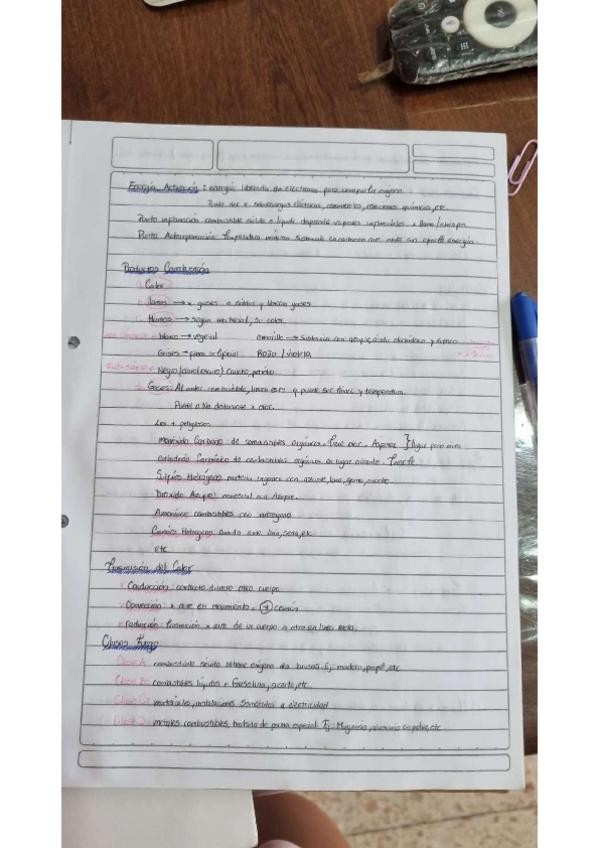 Energía Activación: energía liberada en electrones para compartir oxígeno
Puede ser x sobrecargas eléctricas, reacciones químicas, etc.
Punto inflamación combustible sólido o líquido desprende vapores inflamables + llama/chispa
Punto Autoinflamación: Temperatura mínima sustancia en contacto aire arde sin aporte energía.
Productos Combustión
Calor
Llamas → x gases o sólidos y liberan gases
Humos → según material, su color
blanco → vegetal Amarillo → Sustancia con
Grises → Rojo / violeta
Negro (claro/oscuro) Caucho,
Gases: Al arder combustible, libera esto y puede ser tóxico y temperatura
Puede o No detectarse x olor.
Los + peligrosos
Monóxido Carbono de combustibles orgánicos. Tiene olor.
Carbónico de combustibles orgánicos en lugar
Sulfuro Hidrógeno materia orgánica con azufre, lana, goma,
Dióxido Azufre material con Azufre.
Amoníaco combustibles con nitrógeno
Hidrógeno cuando arde lana, seda, etc
etc
Trasmisión del Calor
Conducción: contacto directo otro cuerpo
Convección: x aire en movimiento. + común
Radiación: Trasmisión x aire de un cuerpo a otro en línea recta.
Clases Fuego
Clase A: combustible sólido Ej: madera, papel, etc
Clase B: combustibles líquidos Gasolina, aceite, etc.
Clase C: materiales, instalaciones sometidas a electricidad
Clase D: metales combustibles, tratado de forma especial. Ej: Magnesio, aluminio en polvo, etc